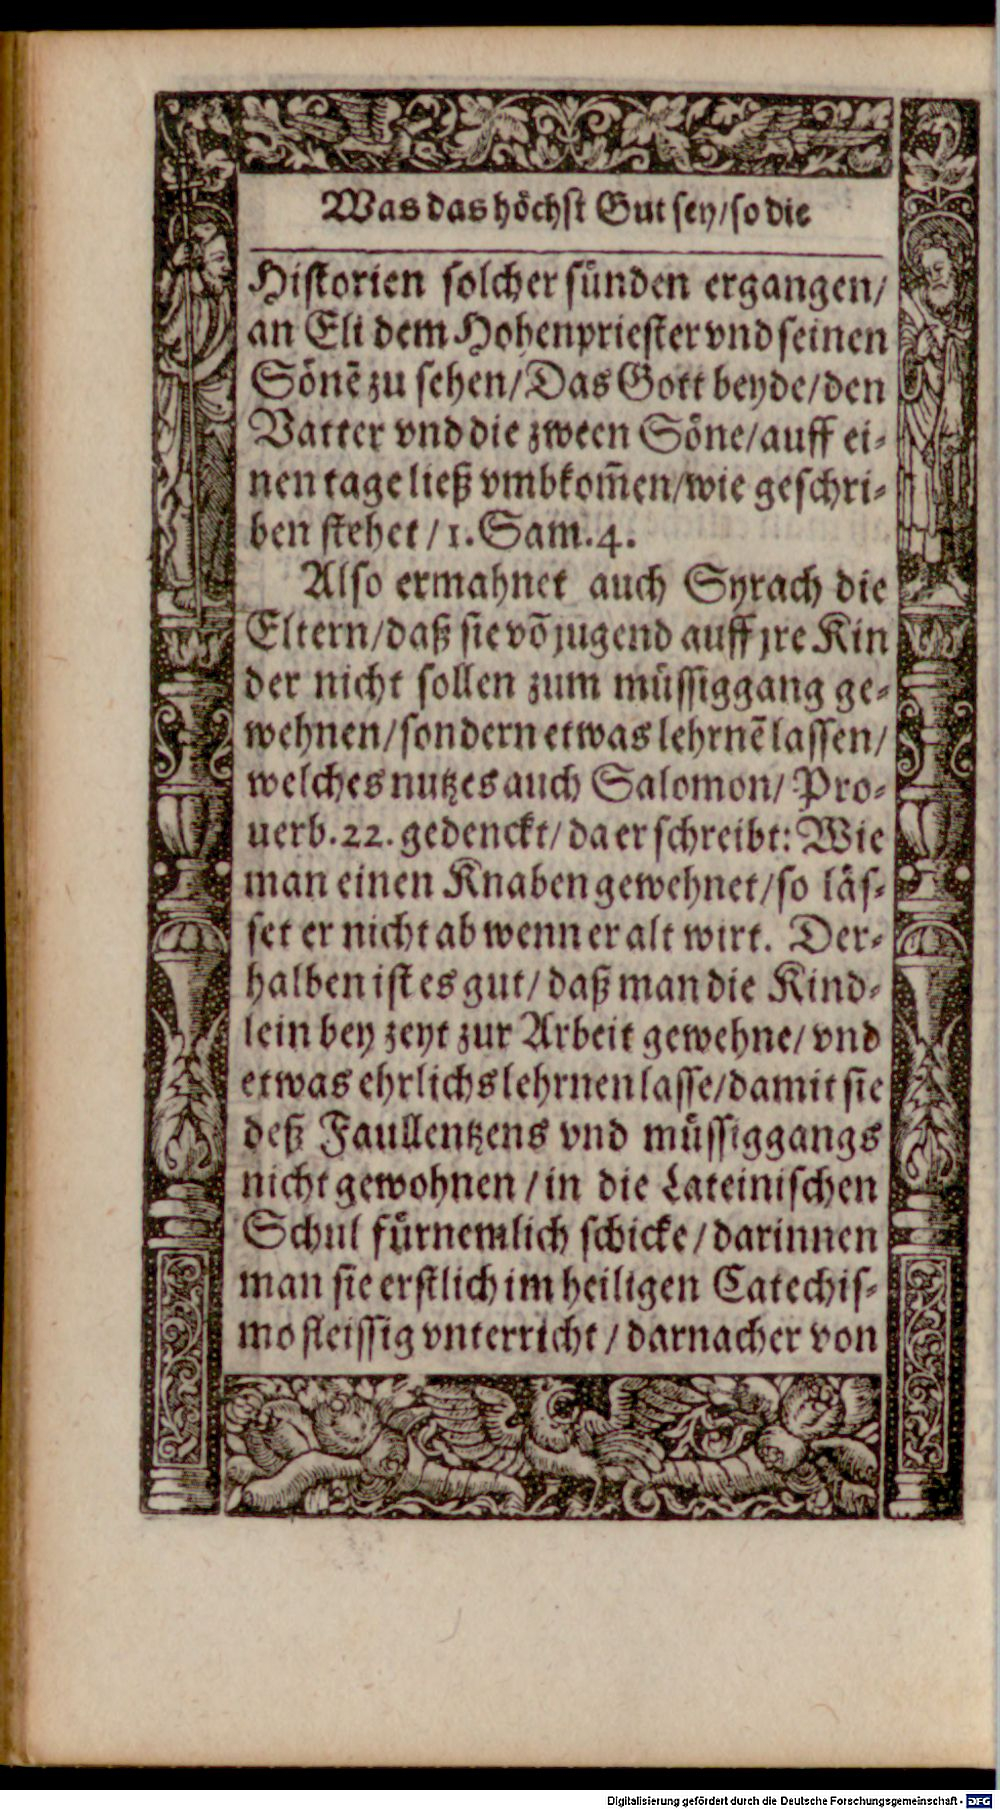 Was das höchst Gut sey/so die
Historien solcher sünden ergangen/
an Eli dem Hohenpriester vnd seinen
Sönẽ zu sehen/Das Gott beyde/den
Vatter vnd die zween Söne/auff ei-
nen tage ließ vmbkom̃en/wie geschri-
ben stehet / 1. Sam. 4.
Also ermahnet auch Syrach die
Eltern/daß sie võ jugend auff jre Kin
der nicht sollen zum müssiggang ge-
wehnen/sondern etwas lehrnẽ lassen/
welches nutzes auch Salomon/ Pro-
uerb. 22. gedenckt/ da er schreibt: Wie
man einen Knaben gewehnet/so läs-
set er nicht ab wenn er alt wirt. Der-
halben ist es gut/ daß man die Kind-
lein bey zeyt zur Arbeit gewehne/ vnd
etwas ehrlichs lehrnen lasse/damit sie
deß Faullentzens vnd müssiggangs
nicht gewohnen / in die Lateinischen
Schul fürnemlich schicke / darinnen
man sie erstlich im heiligen Catechis-
mo fleissig vnterricht / darnacher von
Digitalisierung gefördert durch die Deutsche Forschungsgemeinschaft - DFG